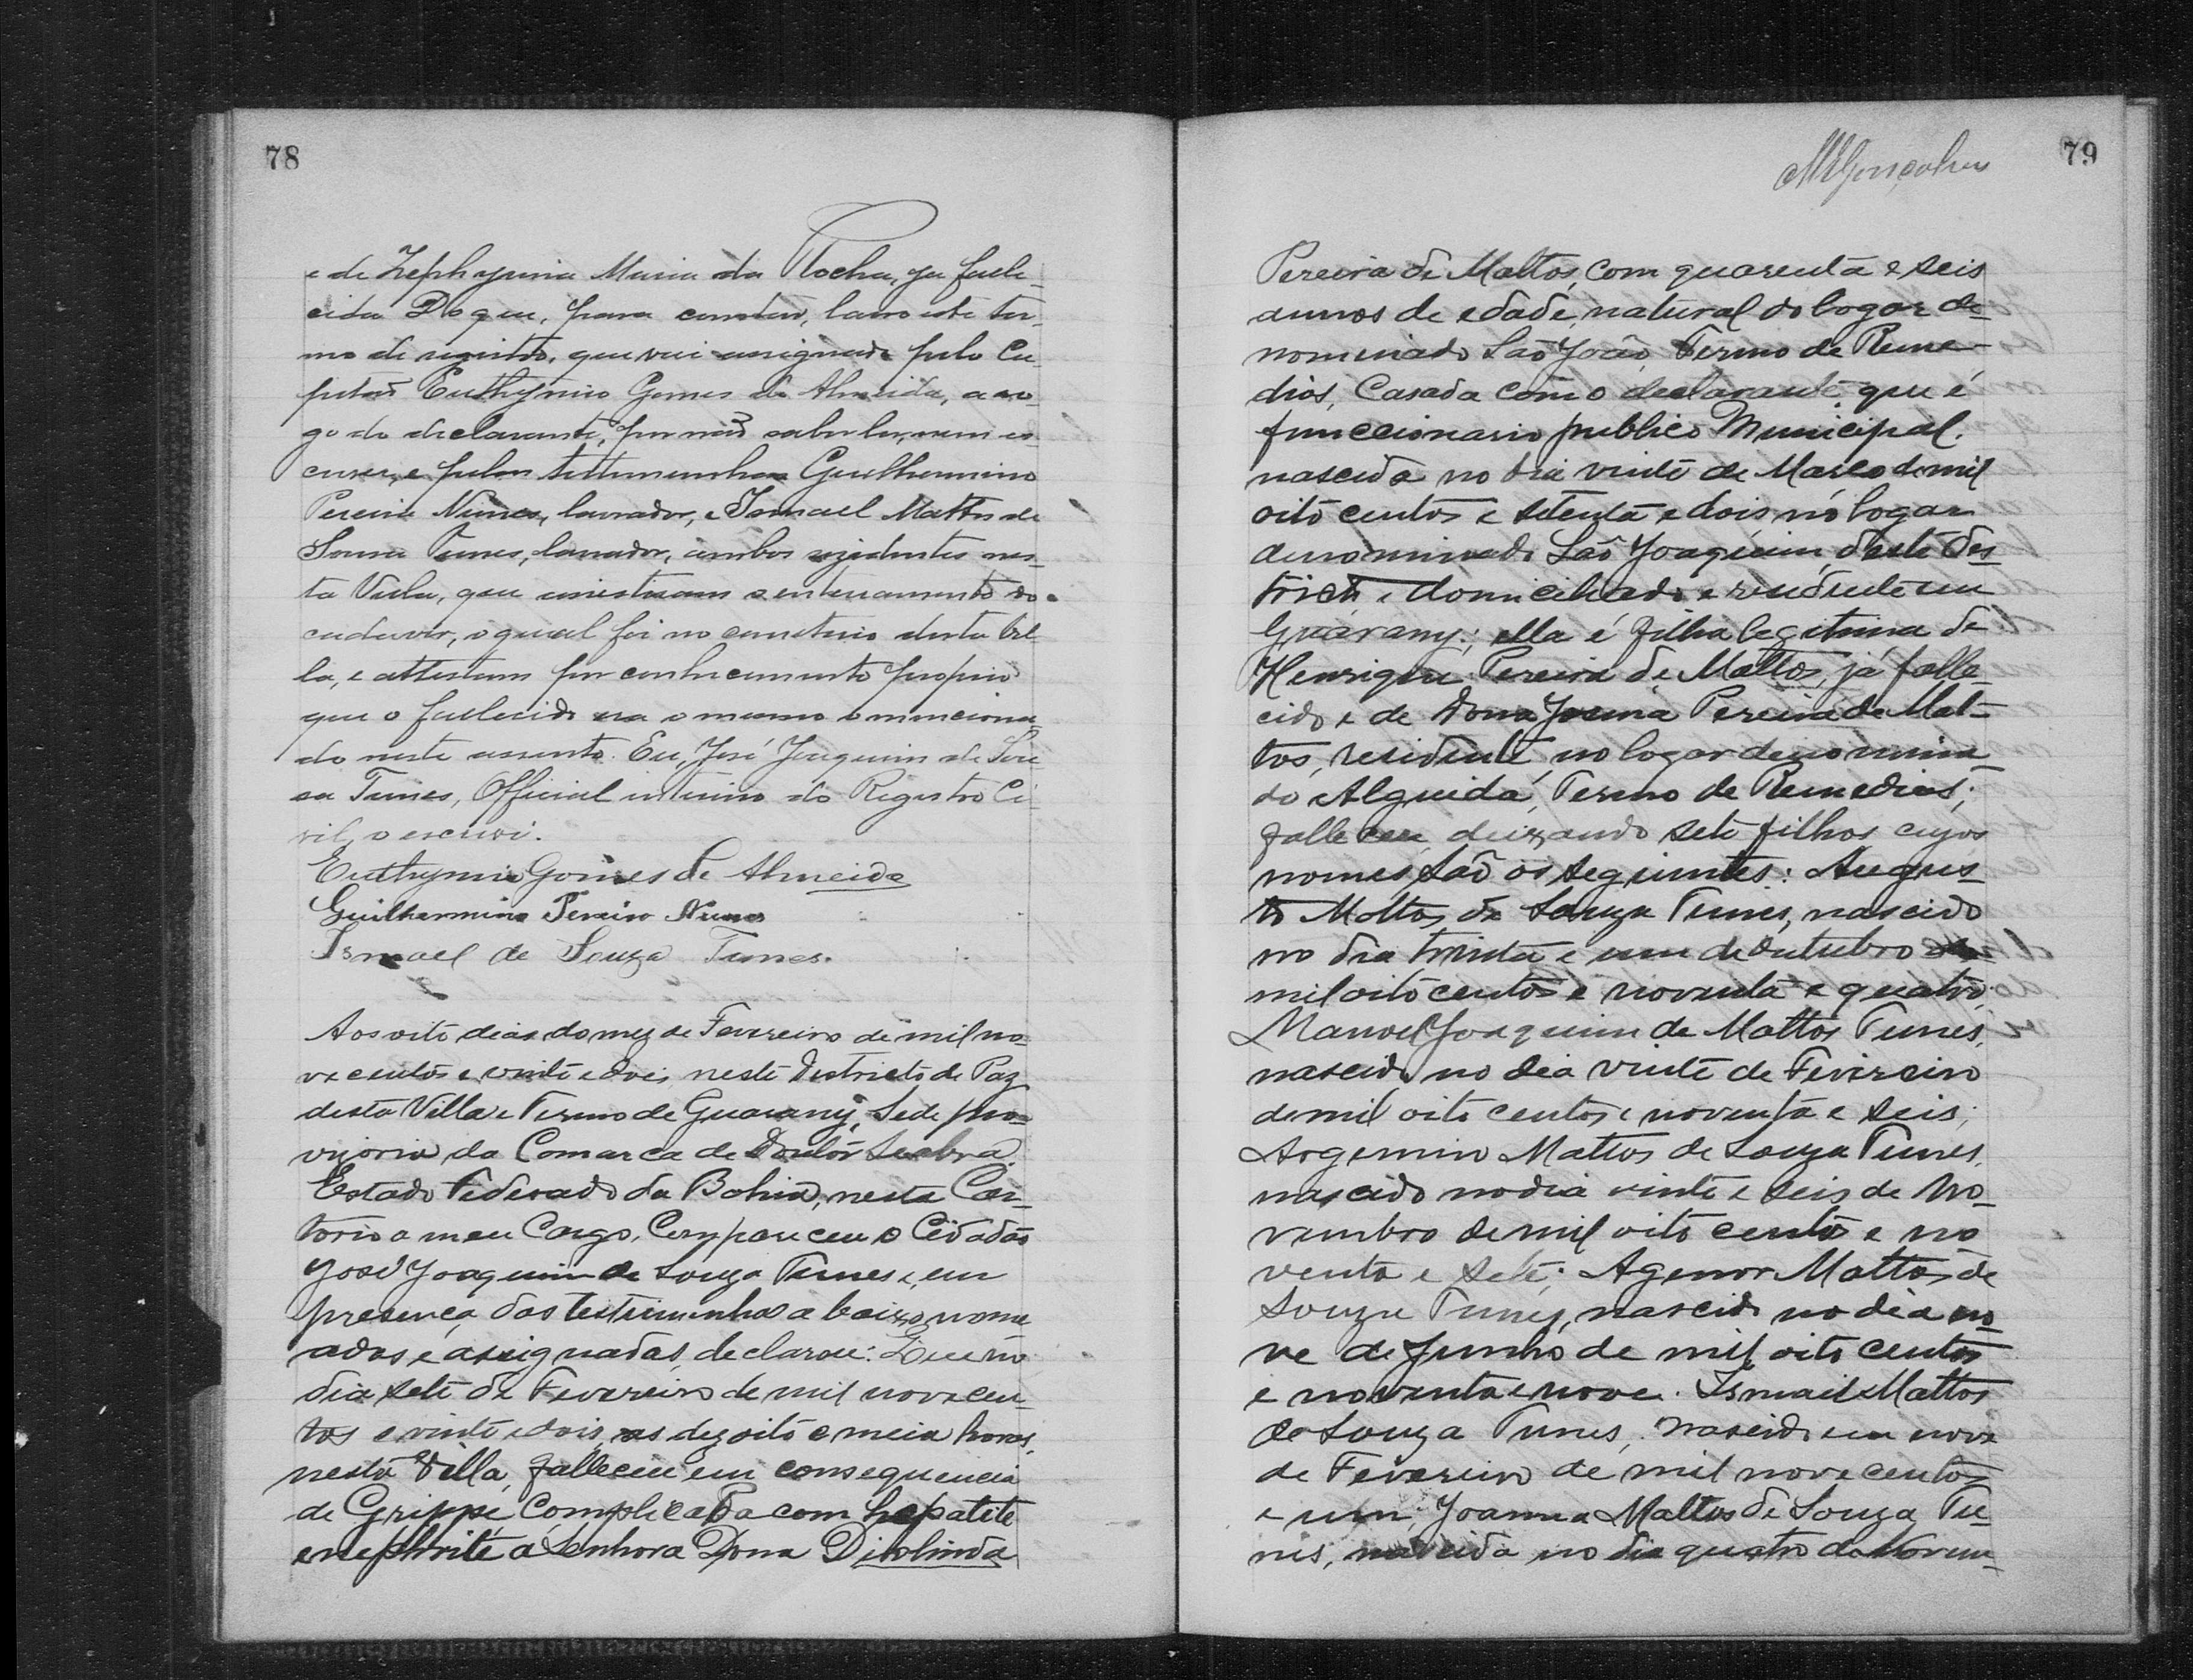 78
e de Zephyrina Maria da Rocha, ja falle-
cida Do que, para constar, lavro este ter-
mo de registro, que vai assignado pelo Ca-
pitão Euthymio Gomes de Almeida, a ro-
go do declarante, por não saber ler, nem es-
crever, e pelas testemunhas Guilhermino
Pereira Nunes, lavrador, e Ismael Mattos de
Souza Tunes, lavrador, ambos rezidentes nes-
ta Villa, que assistiram o enterramento do
cadaver, o qual foi no cemiterio desta Vil-
la, e attestam por conhecimento proprio
que o fallecido era o mesmo o menciona-
do neste assento. Eu, José Joaquim de Sou-
sa Tunes, Official interino do Registro Ci-
vil, o escrivi.
Euthymio Gomes de Almeida
Guilhermino Pereira Nunes
Ismael de Souza Tunes.
Aos oito dias do mez de Fevereiro de mil no-
ve centos e vinte e dois, neste Districto de Paz
desta Villa e Termo de Guarany, Sede pro-
visoria da Comarca de Doutor Seabra
Estado Federado da Bahia, nesta Car-
torio a meu Cargo, Compareceu o Cidadão
José Joaquim de Souza Tunes e, em
presença das testimunhas a baixo nome-
adas e assignadas, declarou: Que no
dia sete de Fevereiro de mil nove cen-
tos e vinte e dois, as dezoito e meia horas,
nesta Villa, falleceu em consequencia
de Grippe Complicada com hepatite
e nephrite a Senhora Dona Diolinda
79
MGonçalves
Pereira de Mattos, com quarenta e seis
annos de edade, natural do logar de-
nominado São João, Termo de Reme-
dios, Casada com o declarante que é
funccionario publico Municipal.
nascido no dia vinte de Março de mil
oito centos e setenta e dois no logar
denominado São Joaquim, deste Des-
tricto, e domiciliado e residente em
Guarany; ella é filha legitima de
Henrique Pereira de Mattos, já falle-
cido e de Dona Pereira de Mat-
tos, residente, no logar denomina-
do Alguidá, Termo de Remedios;
falleceu deixando sete filhos cujos
nomes são os seguintes: Augus-
to Mattos de Souza Tunes, nascido
no dia trinta e um de Outubro de
mil oito centos e noventa e quatro,
Manoel Joaquim de Mattos Tunes,
nascido no dia vinte de Fevereiro
de mil oito centos e noventa e seis;
Argemiro Mattos de Souza Tunes,
nascido no dia vinte e seis de No-
vembro de mil oito centos e no
venta e sete; Agenor Mattos de
Souza Tunes, nascido no dia no-
ve de Junho de mil oito centos
e noventa e nove. Ismael Mattos
de Souza Tunes, nascido em nove
de Fevereiro de mil nove centos
e um; Joanna Mattos de Souza Tu-
nes, nascida no dia quatro de Novem-